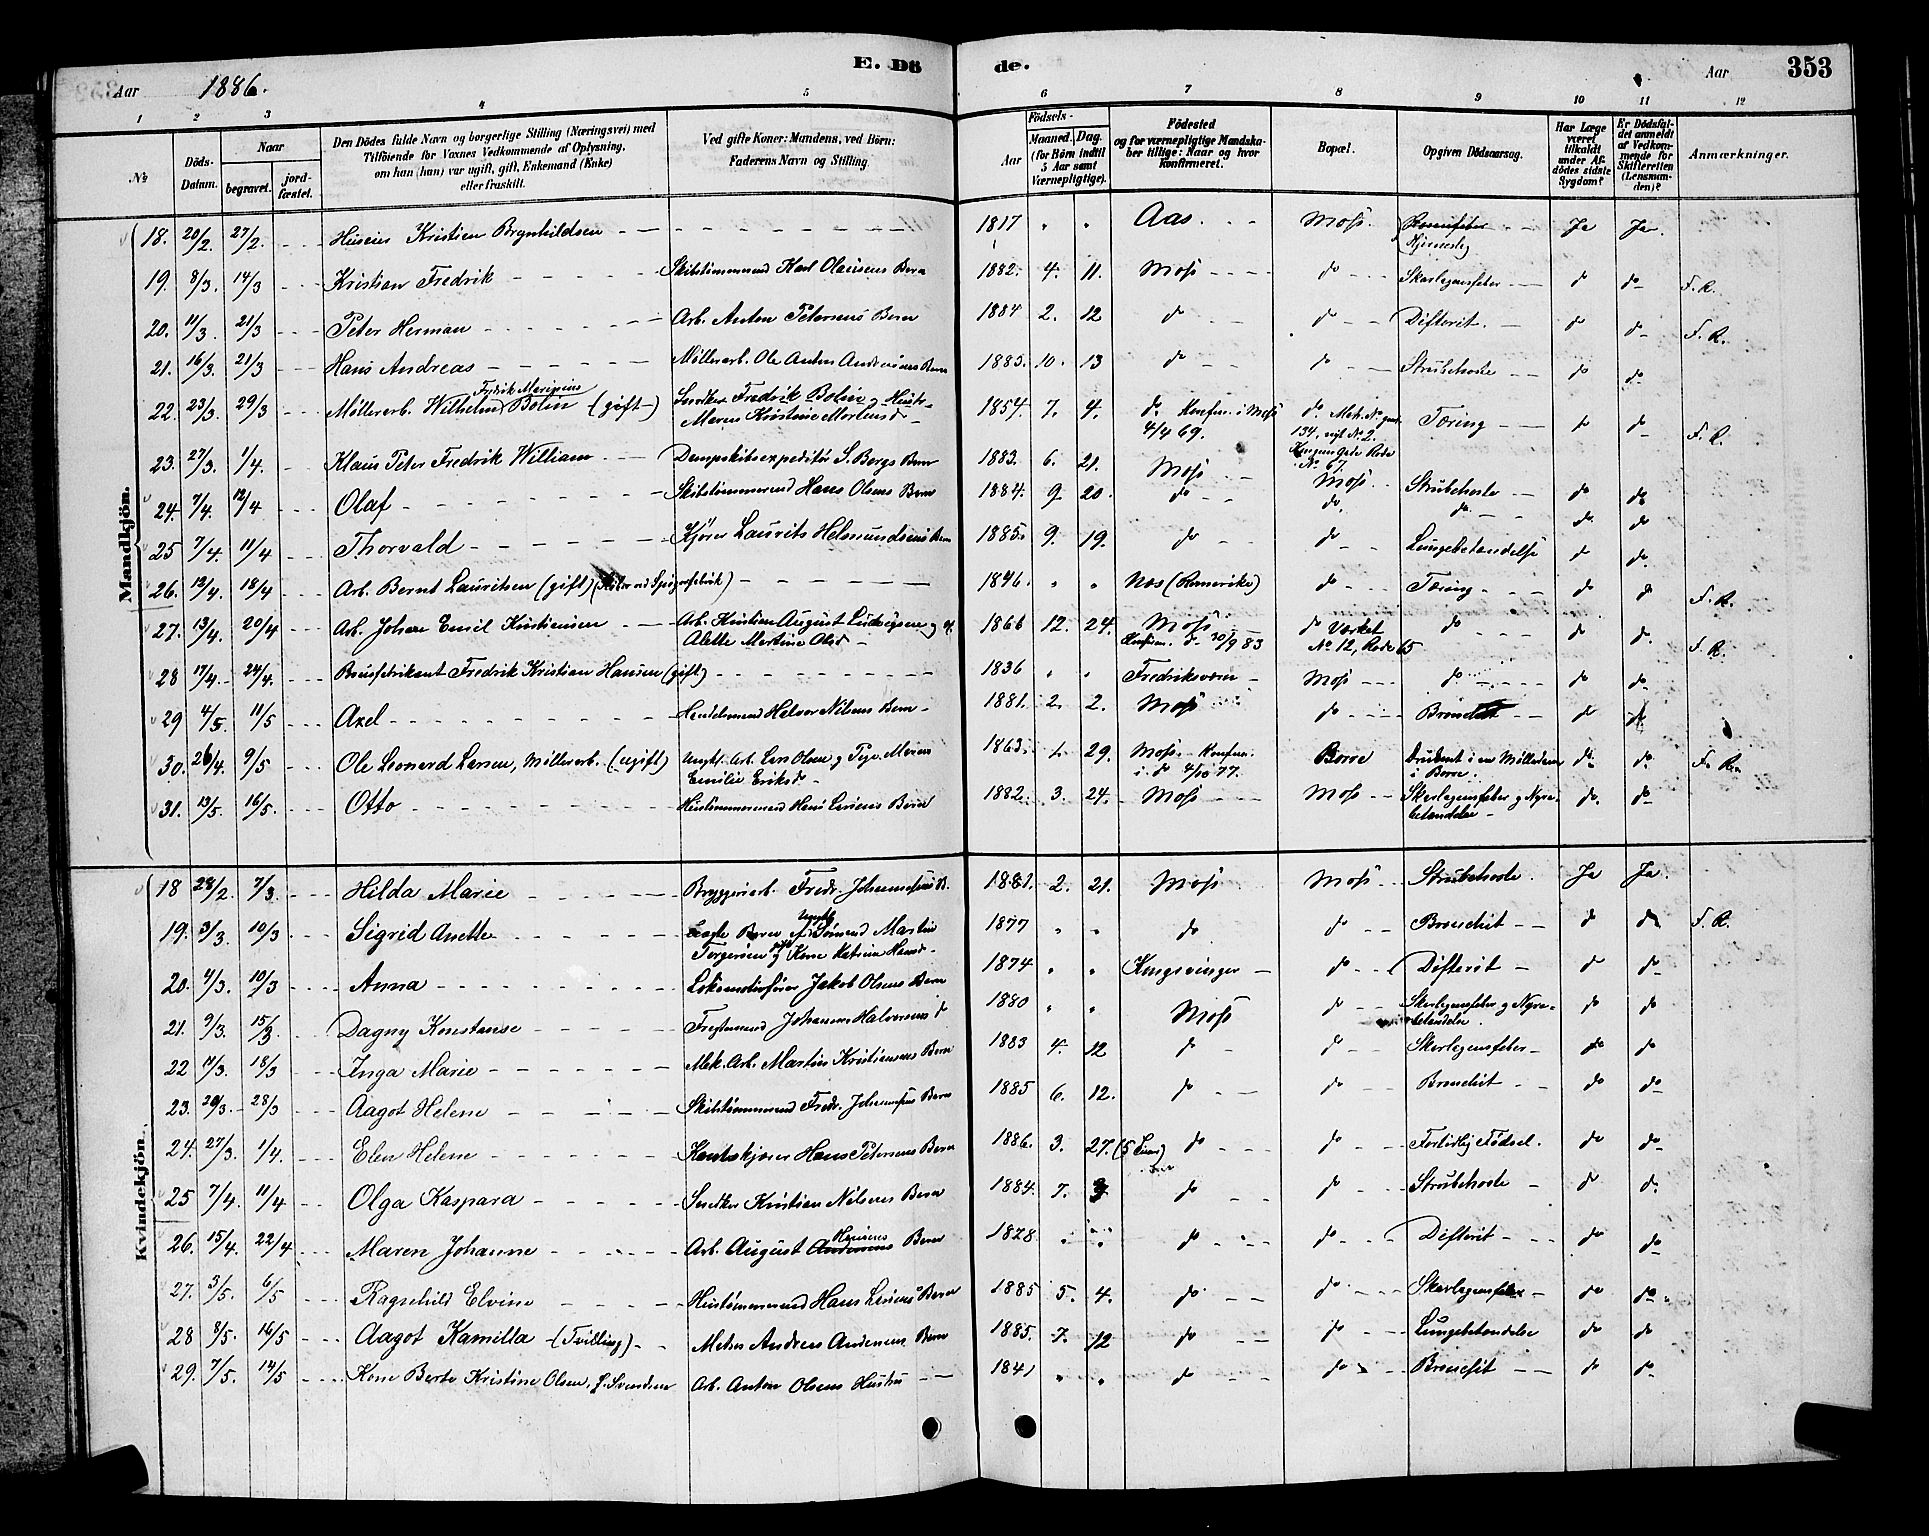 Aar 1886. E. Dö de. Aar 353
1 2 3 4 5 6 7 8 9 10 11 12
№ Döds-Datum. Naar begravet. jord-fæstet. Den Dödes fulde Navn og borgerlige Stilling (Næringsvei) med Tilföiende for Voxnes Vedkommende af Oplysning, om han (hun) var ugift, gift, Enkemand (Enke) eller fraskilt. Ved gifte Koner: Mandens, ved Börn: Faderens Navn og Stilling. Födsels- Aar Maaned. Dag. (for Börn indtil 5 Aar samt Værnepligtige). Födested og for værnepligtige Mandskaber tillige: Naar og hvor konfirmeret. Bopæl. Opgiven Dödsaarsag. Har Læge været tilkaldt under Afdödes sidste Sygdom? Er Dödsfaldet anmeldt af Vedkommende for Skifteretten (Lensmanden)? Anmærkninger.
Mandkjön.
18. 20/2. 27/2. Huseier Kristian Brynhildsen 1817 " " Aas. Moss. Ja Ja.
19. 8/3. 14/3 Kristian Fredrik Skibstømmermand Karl Olausens Barn 1882. 4. 11. Moss do Skarlagensfeber do do F. R.
20. 11/3. 21/3 Peter Herman Arb. Anton Petersens Barn 1884 2. 12 do do Difterit. do do F. R.
21. 16/3. 21/3 Hans Andreas Møllerarb. Ole Anton Andersens Barn 1885. 10. 13 do do Strubehoste do do
22. 23/3. 29/3 Møllerarb. Wilhelm Fredrik Marinius Bolin (gift) Snedker Fredrik Bolin og Hustr. Maren Kristine Mortensd. 1854. 7. 4. do. Konfirm. i Moss 4/4 69. do. Mat. No gml. 134, nyt No 2. Tæring do do F. R.
23. 27/3. 1/4. Klaus Peter Fredrik William Dampskibsexpeditør S. Bergs Barn 1883. 6. 21. Moss Kongens Gade Rode No 67. Moss Strubehoste do do
24. 7/4. 12/4 Olaf Skibstømmermand Hans Olsens Barn 1884. 9 20. do do. do. do. do
25 7/4. 11/4 Thorvald Kjører Laurits Helmundsens Barn 1885. 9. 19. do do Lungebetændelse do do
26. 12/4. 18/4 Arb. Bernt Lauritsen (gift) 1846. " " Nes (Romerike) do Tæring do do F. R.
27. 13/4. 20/4 Arb. Johan Emil Kristiansen Arb. Kristian August Ludvigsen og H. Alette Martine Olsd. 1866 12. 24. Moss Konfirm. do 30/9 83 do Værket No 12, Rode 65 do do do. F. R.
28 17/4. 24/4. Brusfabrikant Fredrik Kristian Hansen (gift) 1836 " " Fredriksværn Moss do do do
29 4/5. 11/5 Axel Handelsmand Halvor Nilsens Barn 1881. 2. 2. Moss do Bronchit do do
30. 26/4. 9/5 Ole Leonard Larsen, Møllerarb. (ugift) Ungk. Arb. Lars Olsen og Pige Maren Emilie Eriksd. 1863. 1. 29. Moss. Konfirm. i do 4/10 77. Borre Druknet i en Mølledam i Borre. do. do. F. R.
31. 13/5. 16/5. Otto Hustømmermand Hans Larsens Barn 1882. 3. 24. Moss Moss Skarlagensfeber og Nyrebetændelse do. do
Kvindekjön.
18 28/2 7/3. Hilda Marie Bryggeriarb. Fredr. Johannesens B. 1881. 2. 21. Moss Moss Strubehoste. Ja Ja.
19. 3/3. 10/3. Sigrid Anette Uægte Barn af Sømand Martin Torgersen og Kone Katrine Hansd. 1877 " " do do Bronchit do do F. R.
20. 4/3. 10/3 Anna Lokomotivfører Jakob Olsens Barn 1874 " " Kongsvinger do Difterit do do
21. 9/3. 15/3. Dagny Konstanse Fragtmand Johannes Halvorsens d 1880 " " Moss do Skarlagensfeber og Nyrebetændelse. do do
22 11/3. 18/3 Inga Marie Mek. Arb. Martin Kristiansens Barn 1883 4. 12 do do Skarlagensfeber do do
23. 20/3. 28/3 Aagot Helene Skibstømmermand Fredr. Johannesens Barn 1885 6. 12. do do Bronchit do do
24. 27/3. 1/4. Elen Helene Hans Petersens Barn 1886. 3. 27. do do Fortidlig Fødsel. do do
25 7/4. 11/4 Olga Kaspara Snedker Kristian Nilsens Barn 1884. 7. do do Strubehoste do do.
26. 15/4. 22/4 Maren Johanne Arb. August Andersens Hansens Barn 1828. do do Difterit do do
27. 3/5. 6/5 Ragnhild Elvine Hustømmermand Hans Larsens Barn 1885 5. 4. do do Skarlagensfeber do do
28 8/5. 16/5 Aagot Kamilla (Tvilling) Andreas Andersens Barn 1885. 7. 12 do do Lungebetændelse do do
29. 7/5. 14/5 Kone Berte Kristine Olsen, f. Svendsen Arb. Anton Olsens Hustru 1841 " " do do Bronchit do do